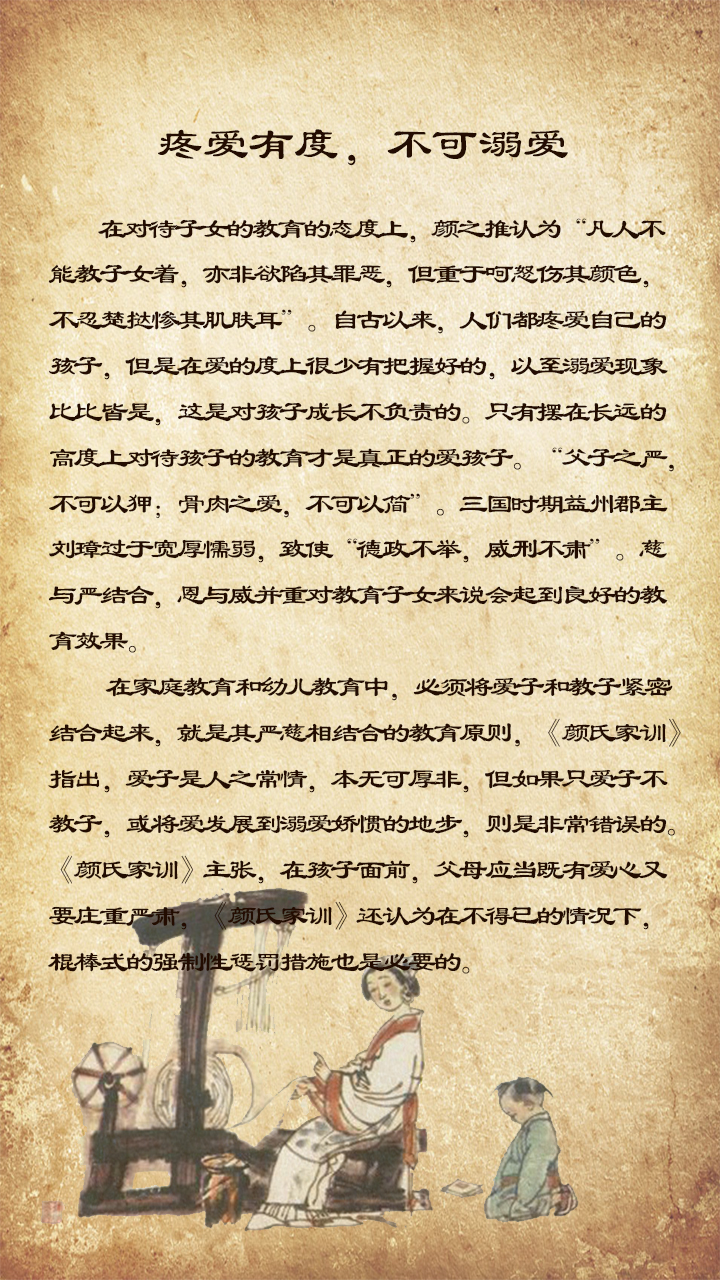 疼爱有度，不可溺爱
在对待子女的教育的态度上，颜之推认为“凡人不
能教子女着，亦非欲陷其罪恶，但重于呵怒伤其颜色，
不忍楚挞惨其肌肤耳”。自古以来，人们都疼爱自己的
孩子，但是在爱的度上很少有把握好的，以至溺爱现象
比比皆是，这是对孩子成长不负责的。只有摆在长远的
高度上对待孩子的教育才是真正的爱孩子。“父子之严，
不可以狎；骨肉之爱，不可以简”。三国时期益州郡主
刘璋过于宽厚懦弱，致使“德政不举，威刑不肃”。慈
与严结合，恩与威并重对教育子女来说会起到良好的教
育效果。
在家庭教育和幼儿教育中，必须将爱子和教子紧密
结合起来，就是其严慈相结合的教育原则，《颜氏家训》
指出，爱子是人之常情，本无可厚非，但如果只爱子不
教子，或将爱发展到溺爱娇惯的地步，则是非常错误的。
《颜氏家训》主张，在孩子面前，父母应当既有爱心又
要庄重严肃，《颜氏家训》还认为在不得已的情况下，
棍棒式的强制性惩罚措施也是必要的。